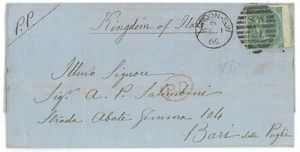 P.P.
Kingdom of Italy
LONDON-S.W
6
65
SW
Illmo Signore
Sigr. A. P. Salamboni
Strada Abate Gemma 104
Bari delle Puglie
P.D.